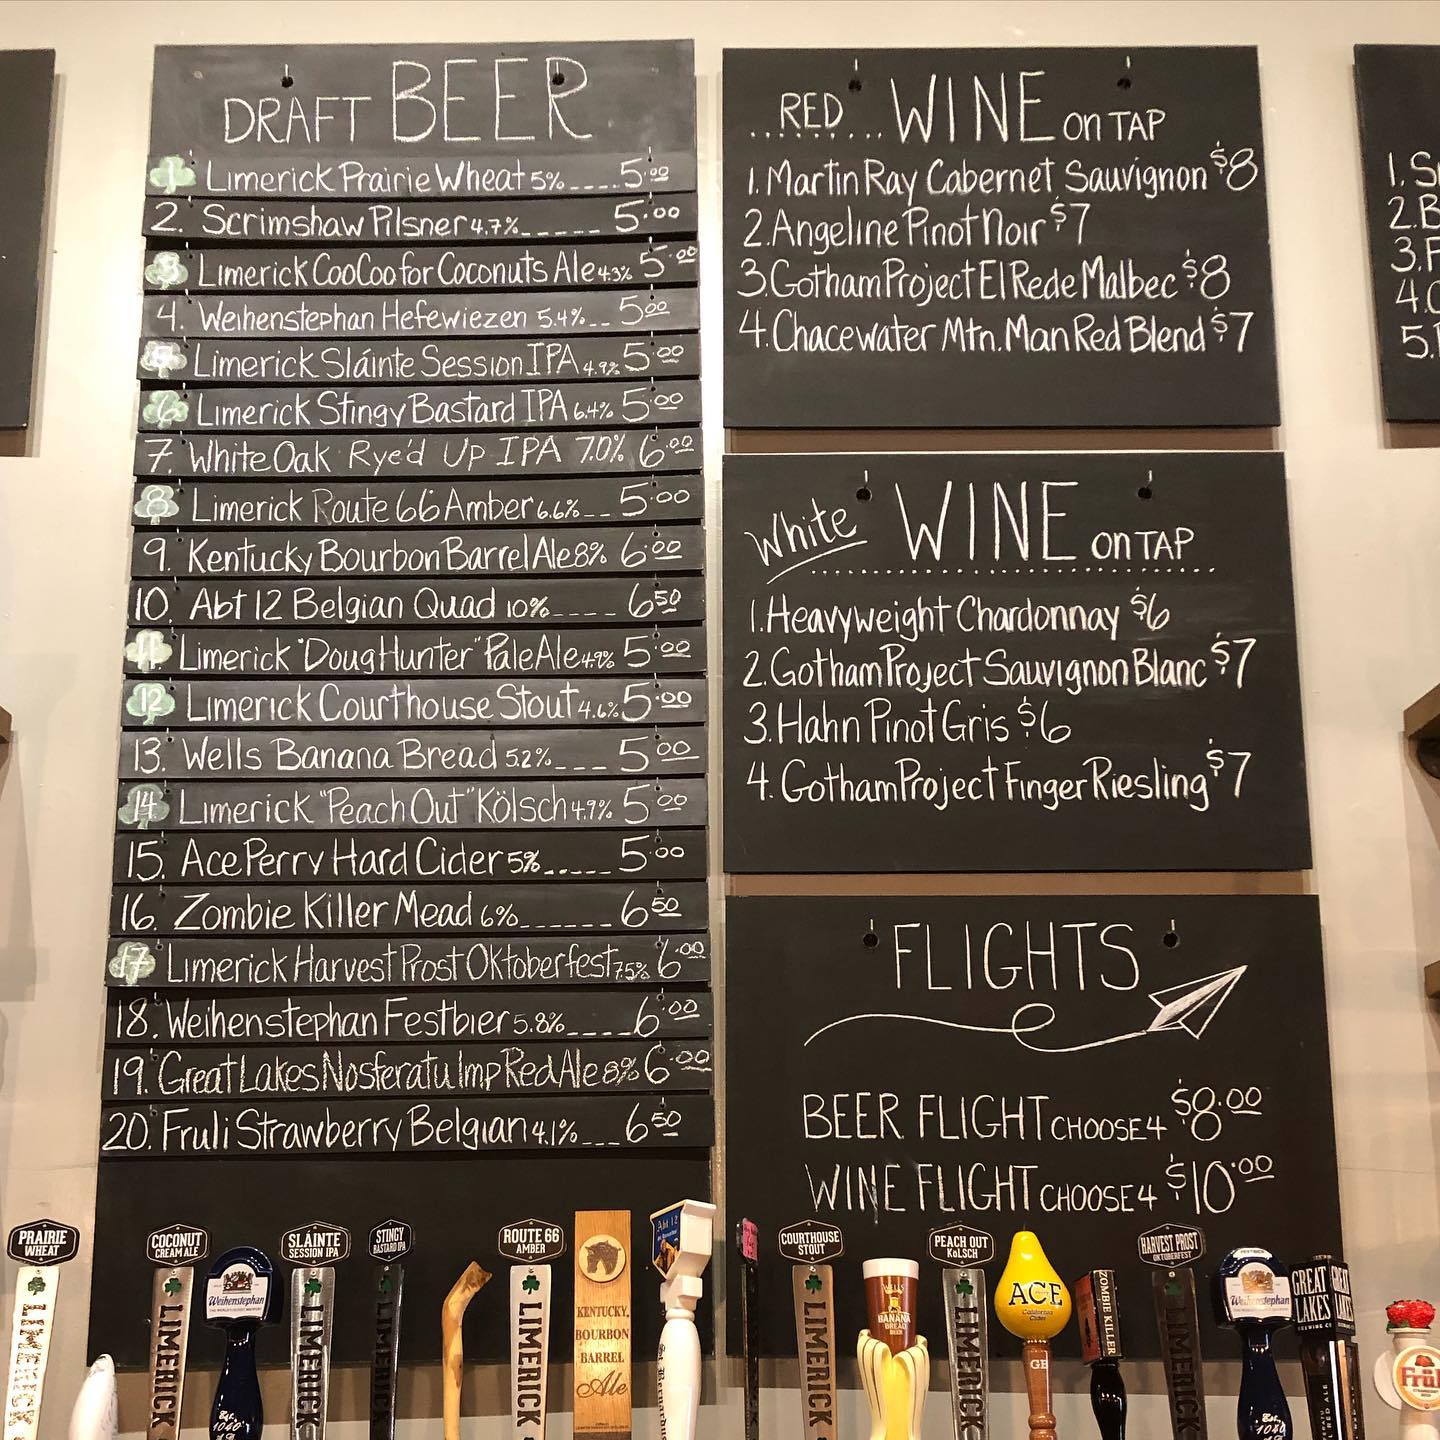 DRAFT BEER
1 Limerick Prairie Wheat 5% ---- 5.00
2. Scrimshaw Pilsner 4.7% ----- 5.00
3 Limerick CooCoo for Coconuts Ale 4.3% 5.00
4. Weihenstephan Hefewiezen 5.4% -- 5.00
5 Limerick Sláinte Session IPA 4.9% 5.00
6 Limerick Stingy Bastard IPA 6.4% 5.00
7. White Oak Rye'd Up IPA 7.0% 6.00
8 Limerick Route 66 Amber 6.6% -- 5.00
9. Kentucky Bourbon Barrel Ale 8% 6.00
10. Abt 12 Belgian Quad 10% ---- 6.50
11 Limerick "Doug Hunter" Pale Ale 4.9% 5.00
12 Limerick Courthouse Stout 4.6% 5.00
13. Wells Banana Bread 5.2% --- 5.00
14 Limerick "Peach Out" Kölsch 4.9% 5.00
15. Ace Perry Hard Cider 5% ----- 5.00
16. Zombie Killer Mead 6% ------ 6.50
17 Limerick Harvest Prost Oktoberfest 7.5% 6.00
18. Weihenstephan Festbier 5.8% ---- 6.00
19. Great Lakes Nosferatu Imp Red Ale 8% 6.00
20. Fruli Strawberry Belgian 4.1% --- 6.50
RED WINE on TAP
1. Martin Ray Cabernet Sauvignon $8
2. Angeline Pinot Noir $7
3. Gotham Project El Rede Malbec $8
4. Chacewater Mtn. Man Red Blend $7
White WINE on TAP
1. Heavyweight Chardonnay $6
2. Gotham Project Sauvignon Blanc $7
3. Hahn Pinot Gris $6
4. Gotham Project Finger Riesling $7
FLIGHTS
BEER FLIGHT CHOOSE 4 $8.00
WINE FLIGHT CHOOSE 4 $10.00
1. S
2. B
3. F
4. C
5.
PRAIRIE
WHEAT
LIMERICK
COCONUT
CREAM ALE
LIMERICK
Weihenstephan
Est.
1040
SLÁINTE
SESSION IPA
LIMERICK
STINGY
BASTARD IPA
LIMERICK
ROUTE 66
AMBER
LIMERICK
KENTUCKY
BOURBON
BARREL
Ale
Abt 12
St. Bernardus
COURTHOUSE
STOUT
LIMERICK
WELLS
BANANA
BREAD
BEER
PEACH OUT
KöLSCH
LIMERICK
ACE
California
Cider
ZOMBIE KILLER
HARVEST PROST
OKTOBERFEST
LIMERICK
FESTBIER
Weihenstephan
Est.
1040
GREAT
LAKES
BREWING CO
Früli